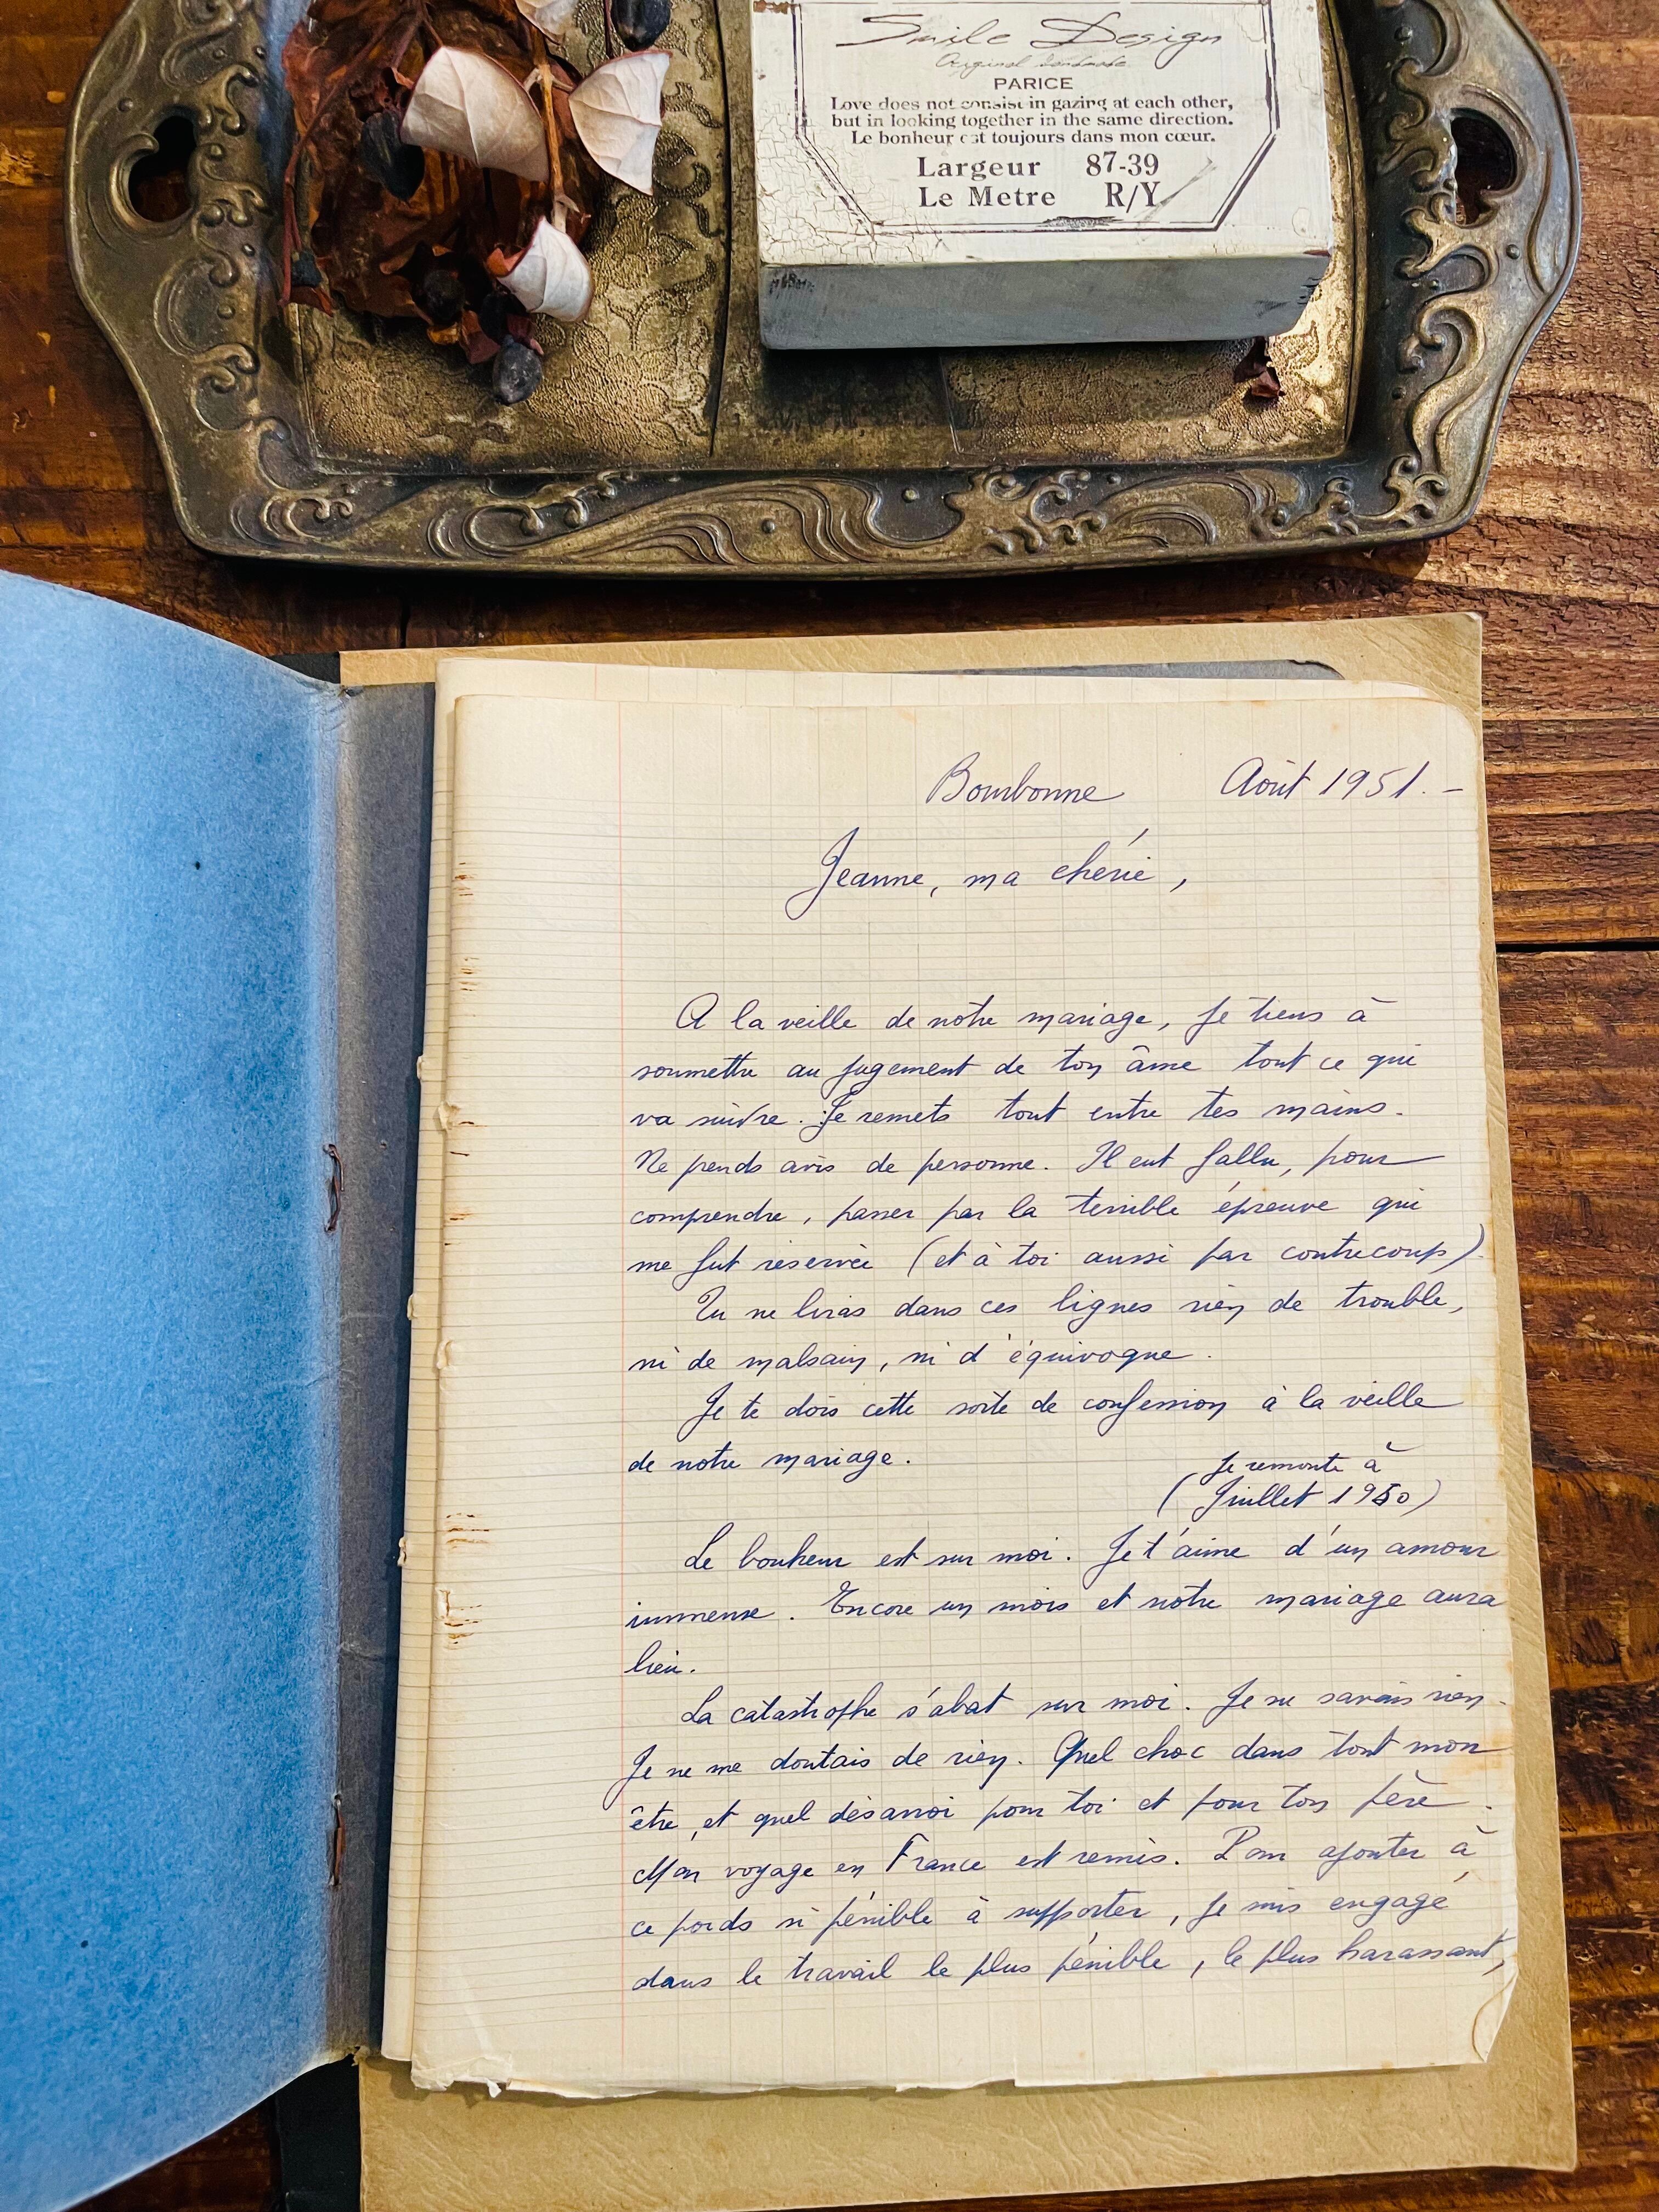 Smile Design
Original handmade
PARICE
Love does not consist in gazing at each other,
but in looking together in the same direction.
Le bonheur est toujours dans mon cœur.
Largeur 87-39
Le Metre R/Y
Bombonne Août 1951. -
Jeanne, ma chérie,
A la veille de notre mariage, je tiens à
soumettre au jugement de ton âme tout ce qui
va suivre. Je remets tout entre tes mains.
Ne prends avis de personne. Il eut fallu, pour
comprendre, passer par la terrible épreuve qui
me fut réservée (et à toi aussi par contrecoup).
Tu ne liras dans ces lignes rien de trouble,
ni de malsain, ni d'équivoque.
Je te dois cette sorte de confession à la veille
de notre mariage.
Je remonte à
(Juillet 1950)
Le bonheur est sur moi. Je t'aime d'un amour
immense. Encore un mois et notre mariage aura
lieu.
La catastrophe s'abat sur moi. Je ne savais rien.
Je ne me doutais de rien. Quel choc dans tout mon
être, et quel désarroi pour toi et pour ton père.
Mon voyage en France est remis. Pour ajouter à
ce poids si pénible à supporter, je suis engagé
dans le travail le plus pénible, le plus harassant,